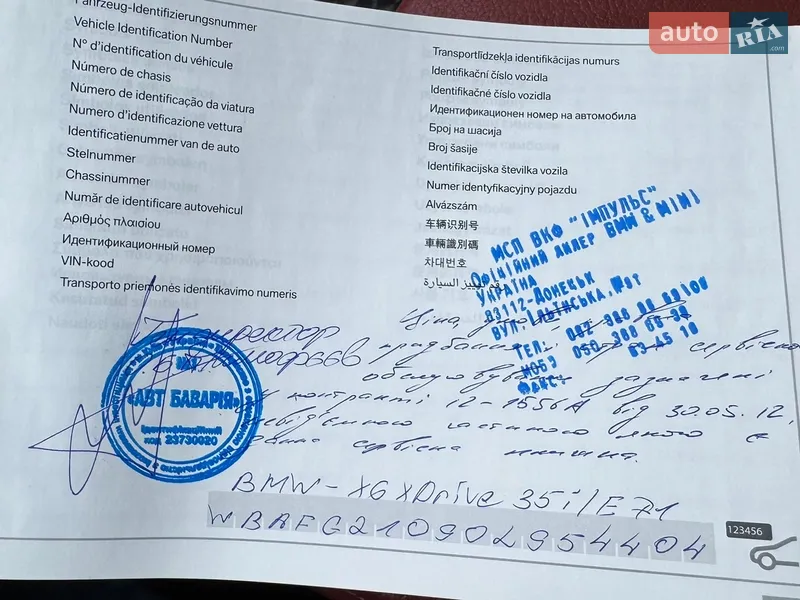 auto RIA .com
Fahrzeug-Identifizierungsnummer
Vehicle Identification Number
N° d'identification du véhicule
Número de chasis
Número de identificação da viatura
Numero d'identificazione vettura
Identificatienummer van de auto
Stelnummer
Chassinummer
Număr de identificare autovehicul
Αριθμός πλαισίου
Идентификационный номер
VIN-kood
Transporto priemonės identifikavimo numeris
Transportlīdzekļa identifikācijas numurs
Identifikační číslo vozidla
Identifikačné číslo vozidla
Идентификационен номер на автомобила
Број на шасија
Broj šasije
Identifikacijska številka vozila
Numer identyfikacyjny pojazdu
Alvázszám
车辆识别号
車輛識別碼
차대번호
رقم تمييز السيارة
МСП ВКФ "ІМПУЛЬС"
Офіційний дилер BMW & MINI
УКРАЇНА
83112-ДОНЕЦЬК
ВУЛ.
ТЕЛ:
МОБ:
ФАКС:
директор
Ціна, придбання сервісно
обслуговування зазначені
контракті 12-1556А від 30.05.12,
невід'ємною частиною якого є
дана сервісна книжка.
«АВТ БАВАРІЯ»
Ідентифікаційний
код 23730020
BMW - X6 xDrive 35i/E71
WBAFG210902954404
123456